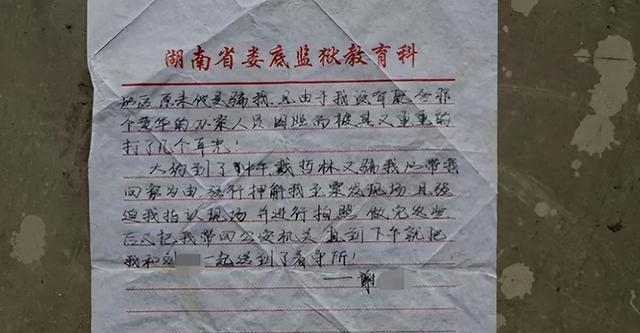 湖南省娄底监狱教育科
原来他是骗我且由于我没有配合那
个黄华的办案人员因此而被其又重重的
打了几个耳光！
大约到了中午戴哲林又骗我以带我
回家为由强行押解我至案发现场且强
迫我指认现场并进行拍照做完这些
后又把我带回公安机关直到下午就把
我和刘 一起送到了看守所！
——谢